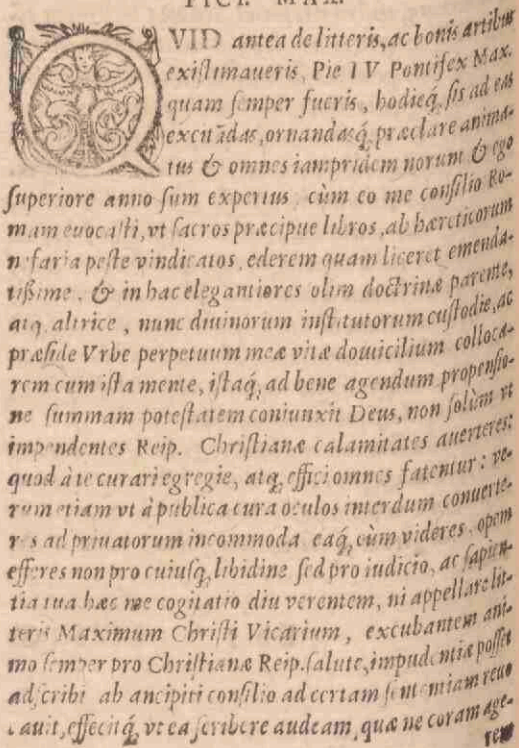 QVID antea de litteris, ac bonis artibus
existimaueris, Pie IV Pontifex Max.
quam semper fueris, hodieq́; sis ad eas
excitādas, ornandasq́; præclare anima-
tus & omnes iampridem norunt & ego
superiore anno sum expertus, cùm eo me consilio Ro-
mam euocasti, vt sacros præcipue libros, ab hæreticorum
nefaria peste vindicatos, ederem quam liceret emenda-
tißime, & in hac elegantiores olim doctrinæ parente,
atq; altrice, nunc diuinorum institutorum custodie, ac
præside Vrbe perpetuum meæ vitæ domicilium colloca-
rem cum ista mente, istaq́; ad bene agendum propensio-
ne summam potestatem coniunxit Deus, non solùm vt
impendentes Reip. Christianæ calamitates auerteres:
quod à te curari egregie, atq; effici omnes fatentur: ve-
rum etiam vt à publica cura oculos interdum conuerte-
res ad priuatorum incommoda eaq́; cùm videres, opem
efferes non pro cuiusq; libidine sed pro iudicio, ac sapien-
tia tua hæc me cogitatio diu verentem, ni appellare lit-
teris Maximum Christi Vicarium, excubantem ani-
mo semper pro Christianæ Reip. salute, impudentiæ posset
adscribi ab ancipiti consilio ad certam sententiam reuo
cauit, effecitq́; vt ea scribere audeam, quæ ne coram age-
rem